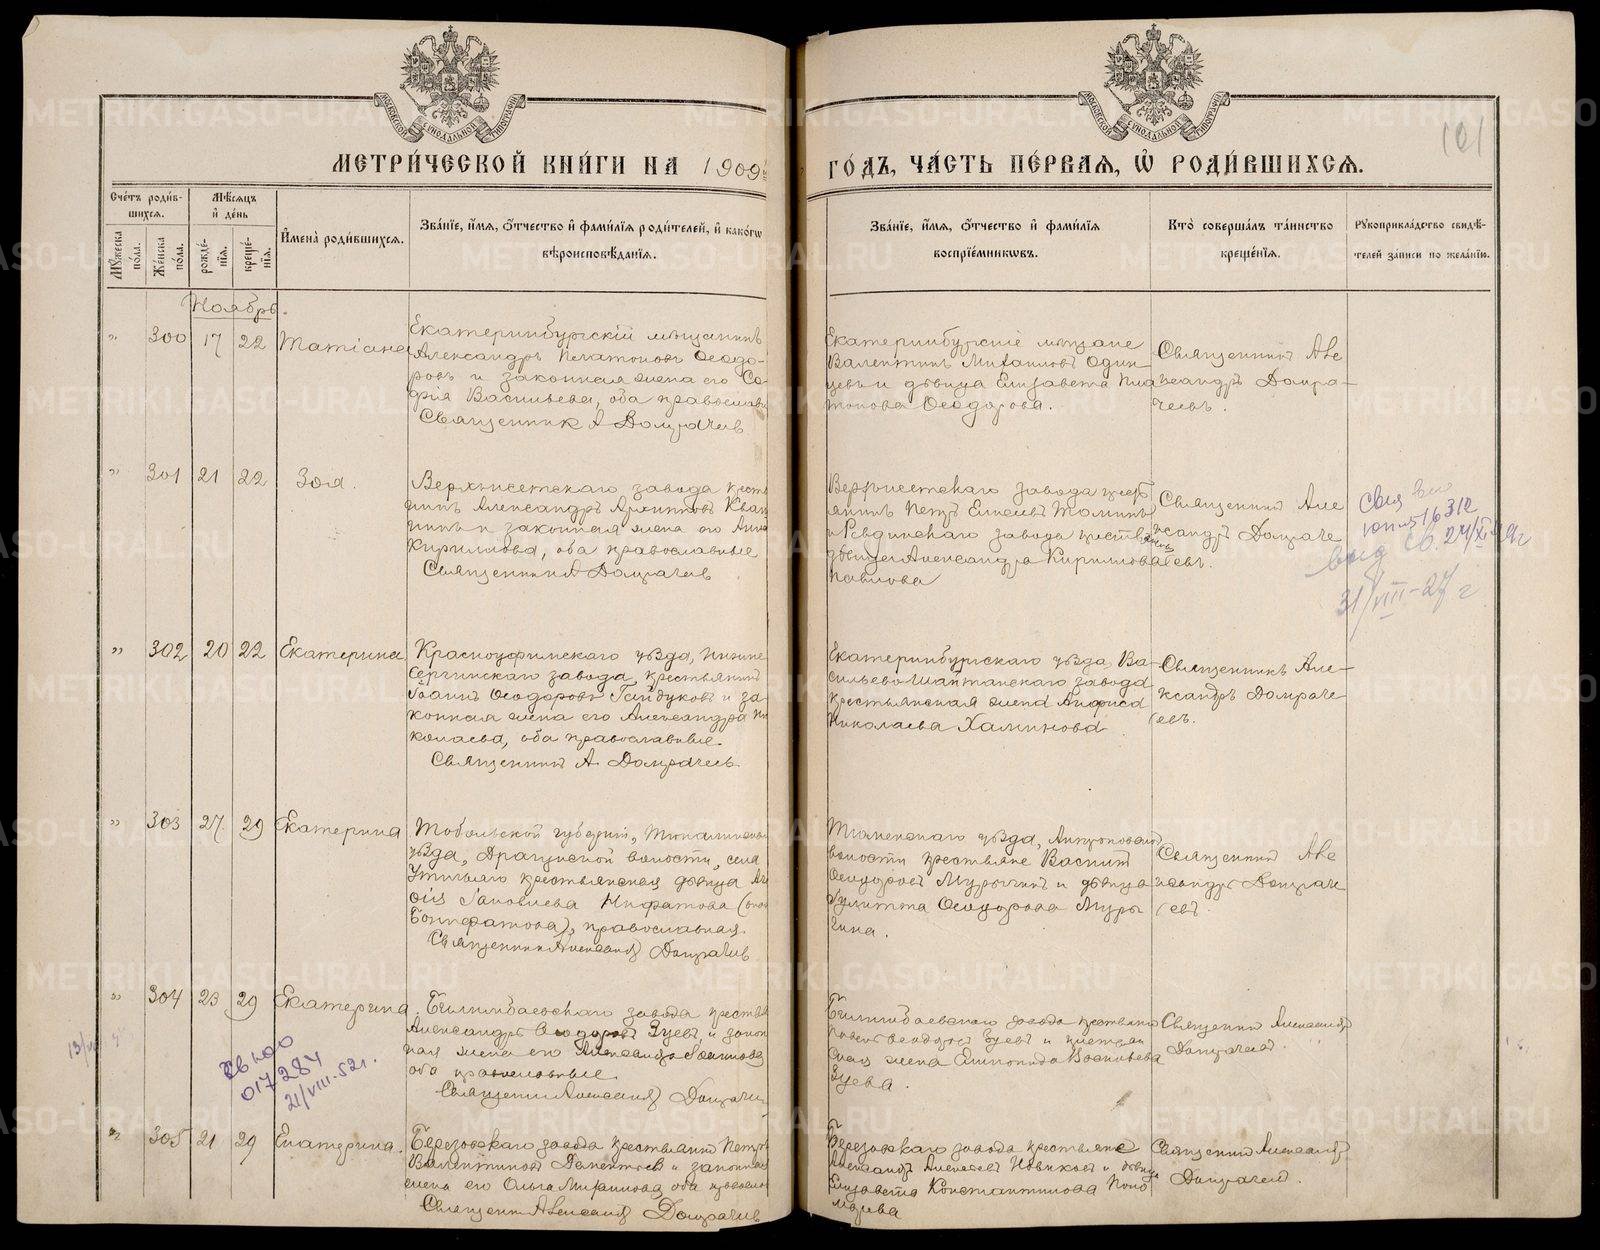 МЕТРИ́ЧЕСКОЙ КНИ́ГИ НА 1909
ГО́ДЪ, ЧА́СТЬ ПЕ́РВАЯ, Ѡ҆ РОДИ́ВШИХСЯ.
101
Сче́тъ роди́в-
шихся.
Мꙋ́жеска по́ла.
Же́нска по́ла.
Мѣ́сяцъ
и҆ де́нь
рожде́-
нїя.
креще́-
нїя.
И҆мена̀ роди́вшихся.
Зва́нїе, и҆́мя, ѻ҆́тчество и҆ фами́лїя роди́телей, и҆ како́гѡ
вѣроисповѣ́данїя.
Зва́нїе, и҆́мя, ѻ҆́тчество и҆ фами́лїя
воспрїе́мникѡвъ.
Кто̀ соверша́лъ та́инство
креще́нїя.
Рꙋкоприкла́дство свидѣ́-
телей за́писи по жела́нїю.
Ноябрь.
" 300 17 22 Татіана
Екатеринбургскій мѣщанинъ
Александръ Платоновъ Ѳеодо-
ровъ и законная жена его Со-
фія Васильева, оба православн
Священник А Домрачев
Екатеринбургскіе мѣщане
Валентинъ Михаиловъ Один
цевъ и дѣвица Елизавета Пла
тонова Ѳеодорова.
Священникъ Але
ксандръ Домра-
чевъ.
" 301 21 22 Зоя.
Верхъисетскаго завода крест
нинъ Александръ
и законная жена его Анна
Кириллова, оба православные
Священникъ А Домрачев
Верхъисетскаго завода крес
янинъ Петръ
и Ревдинскаго завода крестьянск
дѣвица Александра Кириллова
Павлова
Священникъ Але
ксандръ Домраче
евъ.
16312
выд св. 24/XI
31/VIII-27 г
" 302 20 22 Екатерина
Красноуфимскаго уѣзда, Нижне
Сергинскаго завода, крестьянинъ
Іоаннъ Ѳеодоровъ Гайдуковъ и за-
конная жена его Александра Ни
колаева, оба православные.
Священникъ А. Домрачевъ
Екатеринбургскаго уѣзда, Ва-
сильево-Шайтанскаго завода
крестьянская жена Анфиса
Николаева Халтинова
Священникъ Але-
ксандръ Домраче-
евъ.
" 303 27 29 Екатерина
Тобольской губерніи, Тюкалинскаго
уѣзда, Драгунской волости, села
крестьянская дѣвица
Іаковлева Нифатова (она
Бонифатова), православная.
Священникъ Александръ Домрачев
Тюменскаго уѣзда, Антроповской
волости крестьяне Василій
Ѳеодоровъ Мурычинъ и дѣвица
Іулитта Ѳеодорова Муры
чина.
Священникъ Але
ксандръ Домраче
евъ.
" 304 23 29 Екатерина
Билимбаевскаго завода крестьян
Александръ Ѳеодоровъ Зуевъ, и закон
ная жена его Александра
оба православные.
Священникъ Александръ Домрачев
Билимбаевскаго завода крестьянинъ
Ѳеодоровъ Зуевъ и крестьян
ская жена Васильева
Зуева.
Священникъ Александръ
Домрачевъ.
св ню
017284
21/VIII-52г.
" 305 21 29 Екатерина.
Березовскаго завода крестьянинъ Петръ
Валентиновъ Дементьев и законная
жена его Ольга оба православ
Священникъ Александръ Домрачев
Березовскаго завода крестьяне
Александръ Алексеевъ Новиковъ и дѣвица
Елизавета Константинова Поно
марева
Священникъ Александръ
Домрачевъ.
METRIKI.GASO-URAL.RU